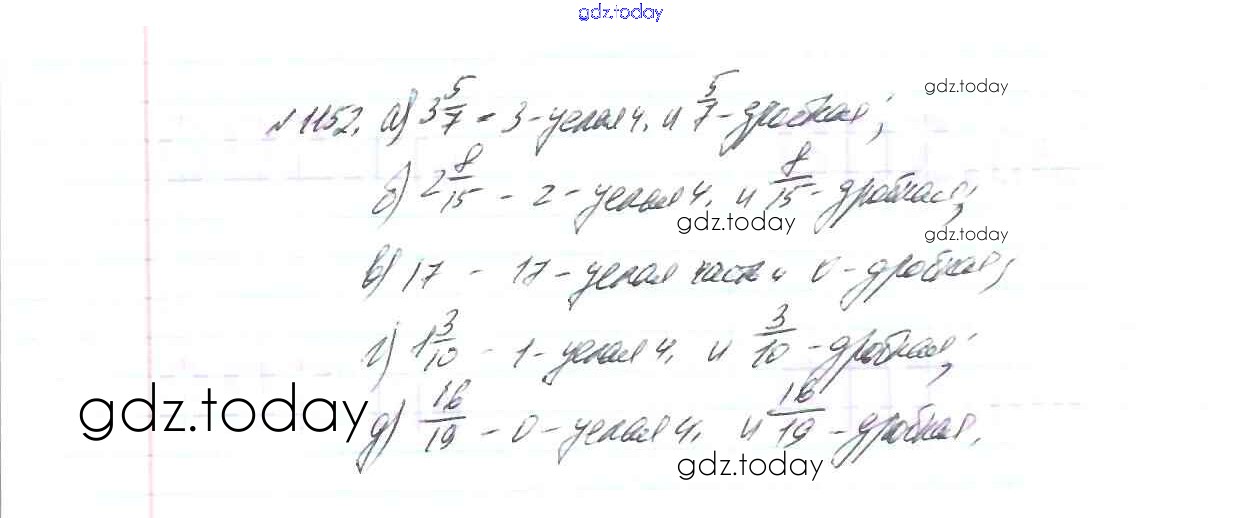 gdz.today
gdz.today
№1152. а) 3 5/7 - 3 - целая ч. и 5/7 - дробная;
б) 2 8/15 - 2 - целая ч. и 8/15 - дробная;
gdz.today
gdz.today
в) 17 - 17 - целая часть и 0 - дробная;
г) 1 3/10 - 1 - целая ч. и 3/10 - дробная;
gdz.today
д) 16/19 - 0 - целая ч. и 16/19 - дробная.
gdz.today